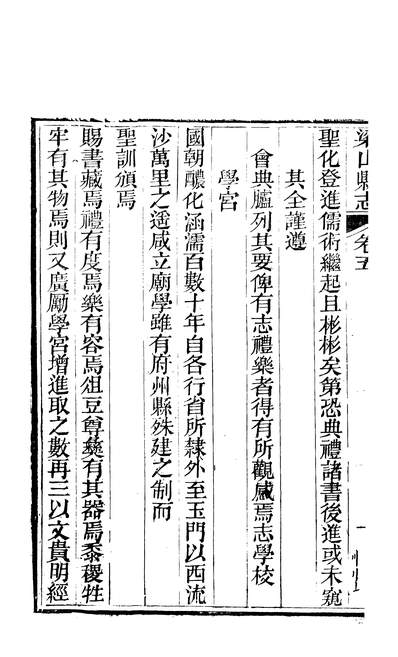 梁山縣志 卷五
聖化登進儒術繼起且彬彬矣第恐典禮諸書後進或未窺
其全謹遵
會典臚列其要俾有志禮樂者得有所觀感焉志學校
學宮
國朝醲化涵濡百數十年自各行省所隸外至玉門以西流
沙萬里之遥咸立廟學雖有府州縣殊建之制而
聖訓頒焉
賜書藏焉禮有度焉樂有容焉俎豆尊彝有其器焉黍稷牲
牢有其物焉則又廣勵學宮增進取之數再三以文貴明經